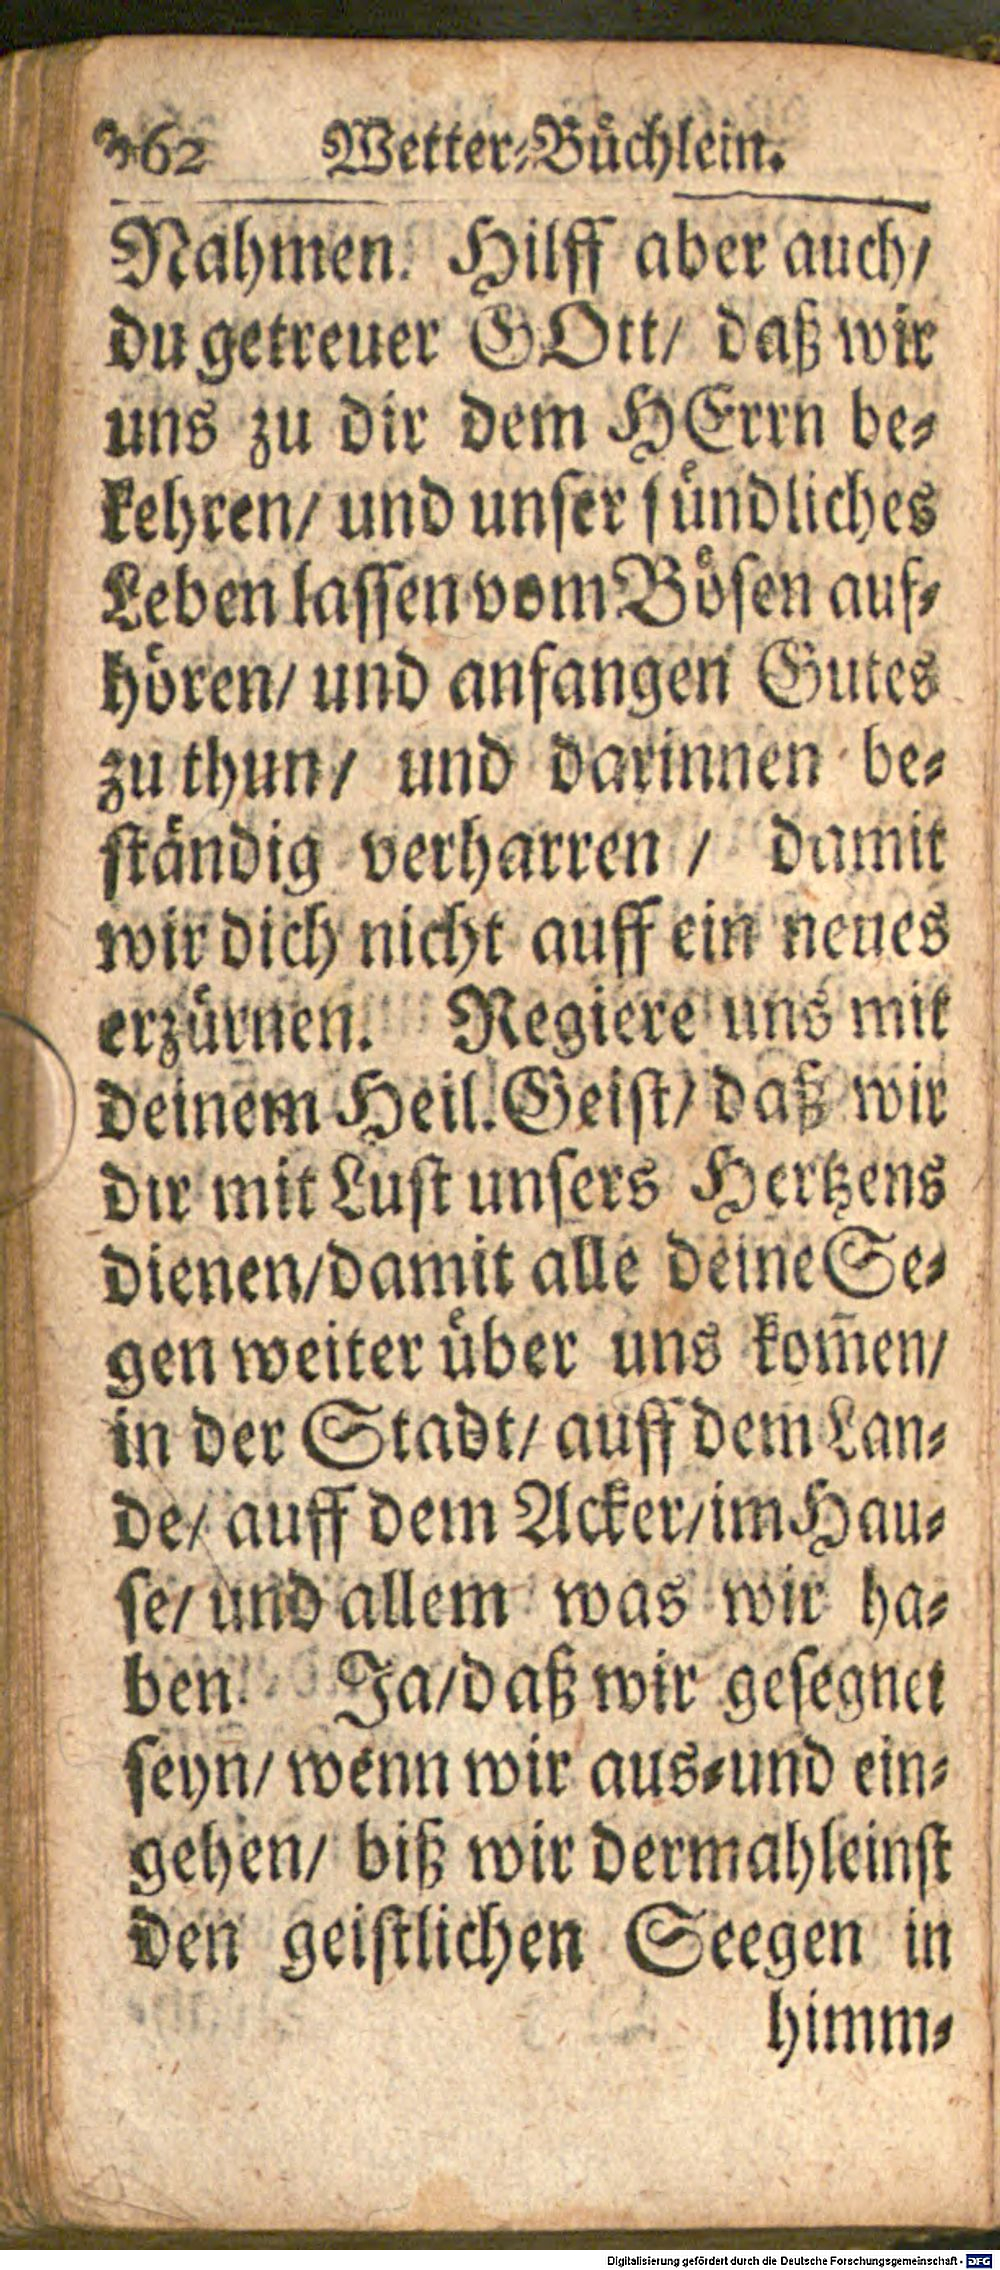 362 Wetter-Büchlein.
Nahmen. Hilff aber auch/
du getreuer GOtt/ daß wir
uns zu dir dem HErrn be-
kehren/ und unser sündliches
Leben lassen vom Bösen auf-
hören/ und anfangen Gutes
zu thun/ und darinnen be-
ständig verharren / damit
wir dich nicht auff ein neues
erzürnen. Regiere uns mit
deinem Heil. Geist/ daß wir
dir mit Lust unsers Hertzens
dienen/damit alle deine Se-
gen weiter über uns kom̃en/
in der Stadt/ auff dem Lan-
de/ auff dem Acker/im Hau-
se/ und allem was wir ha-
ben. Ja/daß wir gesegnet
seyn/ wenn wir aus-und ein-
gehen/ biß wir dermahleinst
den geistlichen Seegen in
himm-
Digitalisierung gefördert durch die Deutsche Forschungsgemeinschaft - DFG